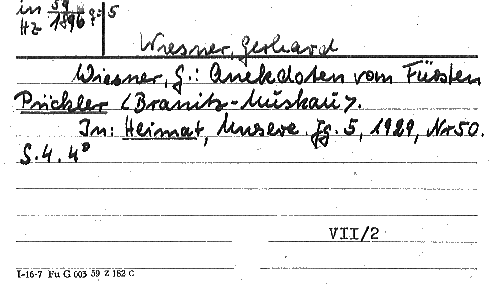 in 59 9=5
HZ 1896
Wiesner, Gerhard
Wiesner, G.: Anekdoten vom Fürsten
Pückler <Branitz-Muskau>.
In: Heimat, Unsere. Jg. 5, 1929, Nr 50.
S. 4. 4°
VII/2
I-16-7 Fu G 003 59 Z 182 C